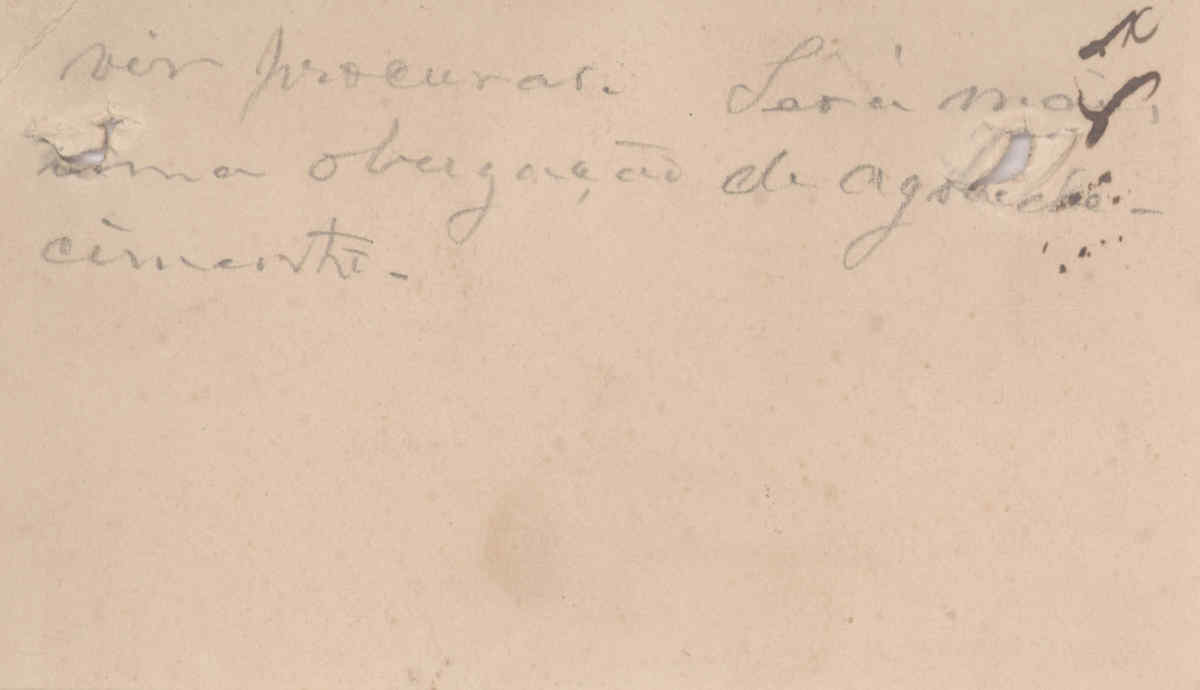 vir procurar. Será mais
uma obrigação de agrade-
cimento.